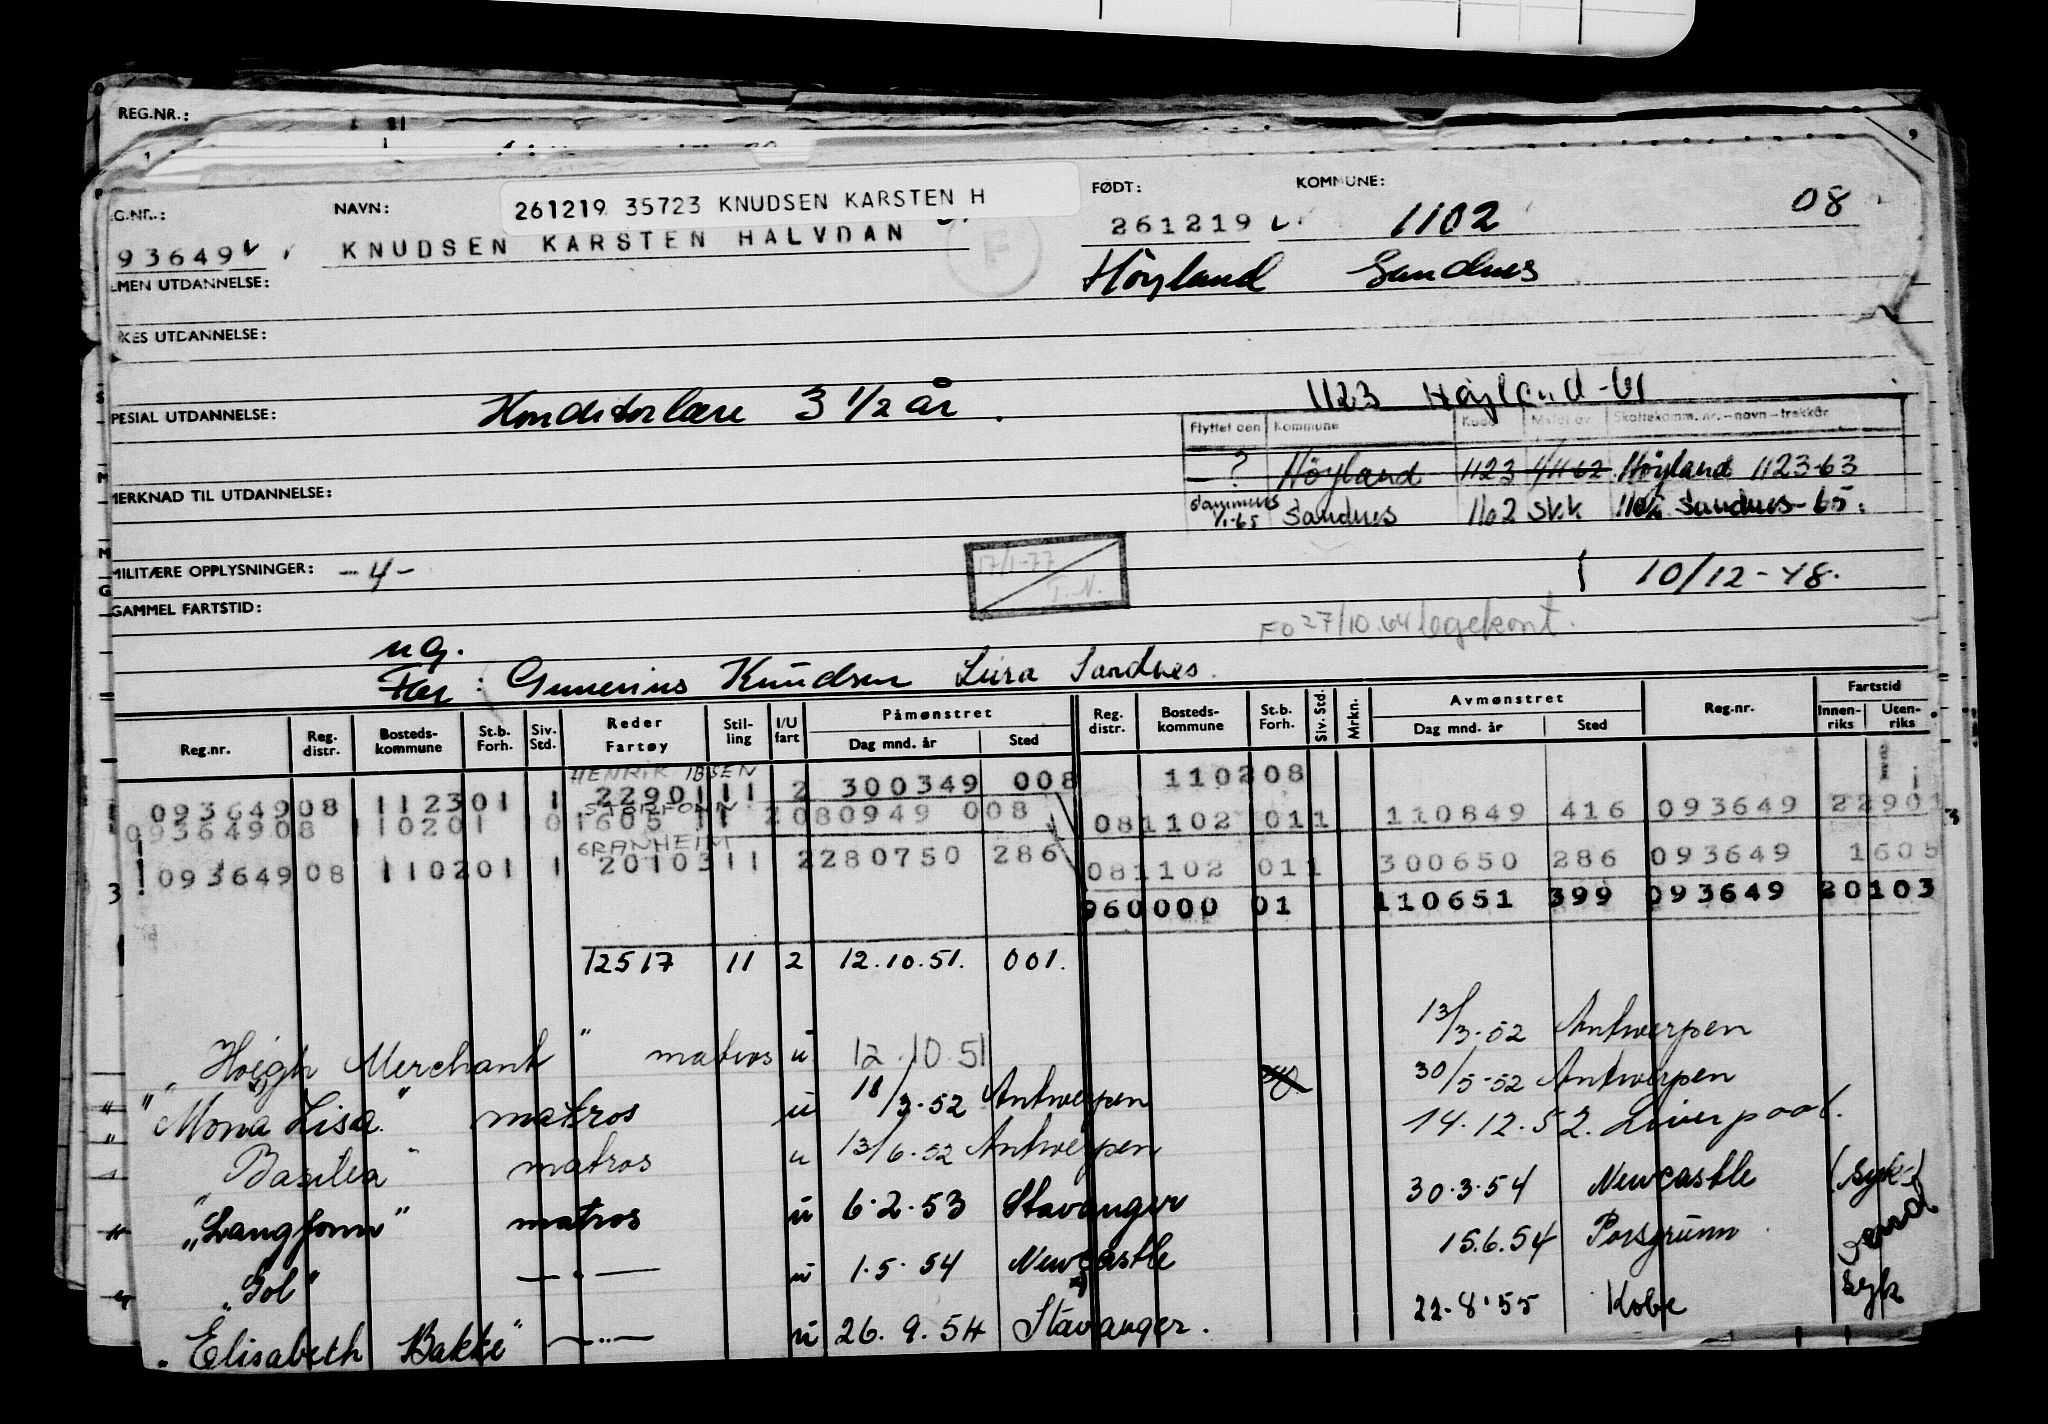 REG.NR.:
9
G.NR.: NAVN: 261219 35723 KNUDSEN KARSTEN H FØDT: KOMMUNE:
93649 KNUDSEN KARSTEN HALVDAN F 261219 1102 08
LMEN UTDANNELSE: Höyland Sandnes
KES UTDANNELSE:
PESIAL UTDANNELSE: Konditorlære 3 1/2 år. 1123 Høyland-61
Flyttet den Kommune Kode Skattekomm. nr.-navn-trekkår
? Höyland 1123 Höyland 1123-63
MERKNAD TIL UTDANNELSE:
1/1-65 Sandnes 1102 skk Sandnes-65.
17/1-77 T.N.
MILITÆRE OPPLYSNINGER: -4- 10/12-48.
GAMMEL FARTSTID:
27/10.64 legekont.
ug.
Far: Gunerius Knudsen Lura Sandnes.
Reg.nr. Reg. distr. Bosteds-kommune St.b. Forh. Siv. Std. Reder Fartøy Stil-ling I/U fart Påmønstret Dag mnd. år Sted Reg. distr. Bosteds-kommune St.b. Forh. Siv. Std. Mrkn. Avmønstret Dag mnd. år Sted Reg.nr. Fartstid Innen-riks Uten-riks
HENRIK IBSEN
09364908 112301 1 2290111 2 300349 008 110208
09364908 110201 0 1605 11 2080949 008 081102 011 110849 416 093649 22901
GRANHEIM
09364908 110201 1 2010311 2280750 286 081102 011 300650 286 093649 1605
3 960000 01 110651 399 093649 20103
12517 11 2 12.10.51. 001.
"Høegh Merchant" matros u 12.10.51 13/3-52 Antwerpen
"Mona Lisa" matros u 18/3-52 Antwerpen 30/5-52 Antwerpen
"Basilea" matros u 13/6.52 Antwerpen 14.12.52. Liverpool.
"Langfonn" matros u 6.2.53 Stavanger 30.3.54 Newcastle (syk)
"Gol" —·— u 1.5.54 Newcastle 15.6.54 Porsgrunn
"Elisabeth Bakke" —··— u 26.9.54 Stavanger. 22.8.55 Kobe syk
vend